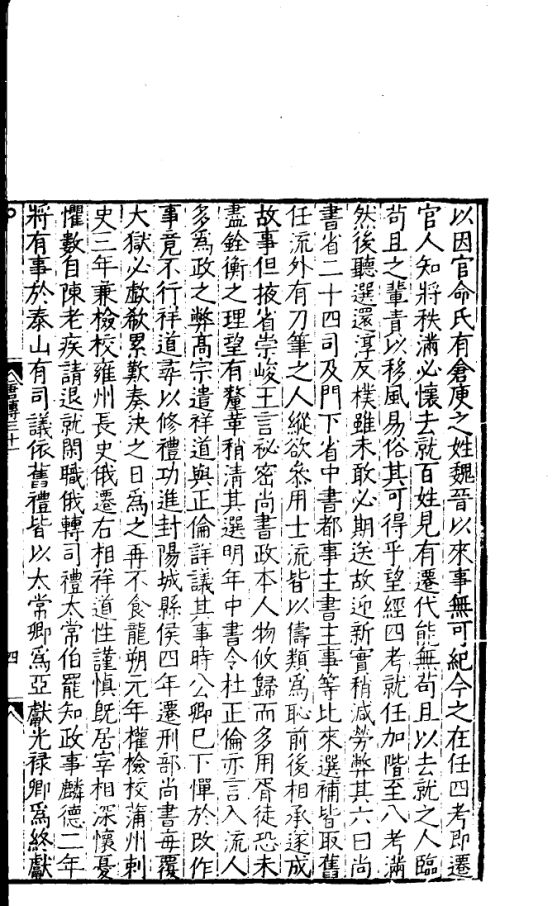 以因官命氏有倉庾之姓魏晉以來事無可紀今之在任四考即遷
官人知將秩滿必懷去就百姓見有遷代能無苟且以去就之人臨
苟且之輩責以移風易俗其可得乎望經四考就任加階至八考滿
然後聽選還淳反樸雖未敢必期送故迎新實稍減勞弊其六曰尚
書省二十四司及門下省中書都事主書主事等比來選補皆取舊
任流外有刀筆之人縱欲叅用士流皆以儔類爲恥前後相承遂成
故事但掖省崇峻王言祕密尚書政本人物攸歸而多用胥徒恐未
盡銓衡之理望有釐革稍清其選明年中書令杜正倫亦言入流人
多爲政之弊髙宗遣祥道與正倫詳議其事時公卿已下憚於改作
事竟不行祥道尋以修禮功進封陽城縣侯四年遷刑部尚書每覆
大獄必歔欷累歎奏決之日爲之再不食龍朔元年權檢校蒲州刺
史三年兼檢校雍州長史俄遷右相祥道性謹慎旣居宰相深懷憂
懼數自陳老疾請退就閑職俄轉司禮太常伯罷知政事麟德二年
將有事於泰山有司議依舊禮皆以太常卿爲亞獻光禄卿爲終獻
唐傳三十一
四